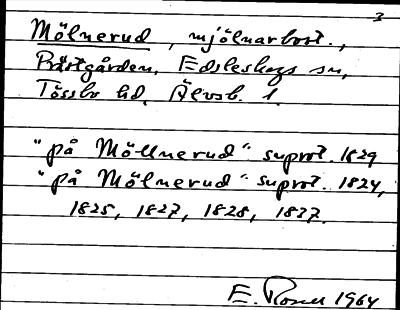 3
Mölnerud, mjölnarbost.,
Prästgården, Edsleskogs sn,
Tössbo hd, Älvsb. l.
"på Möllnerud" suprot. 1829
"på Mölnerud" suprot. 1824,
1825, 1827, 1828, 1837.
E. Rosell 1964